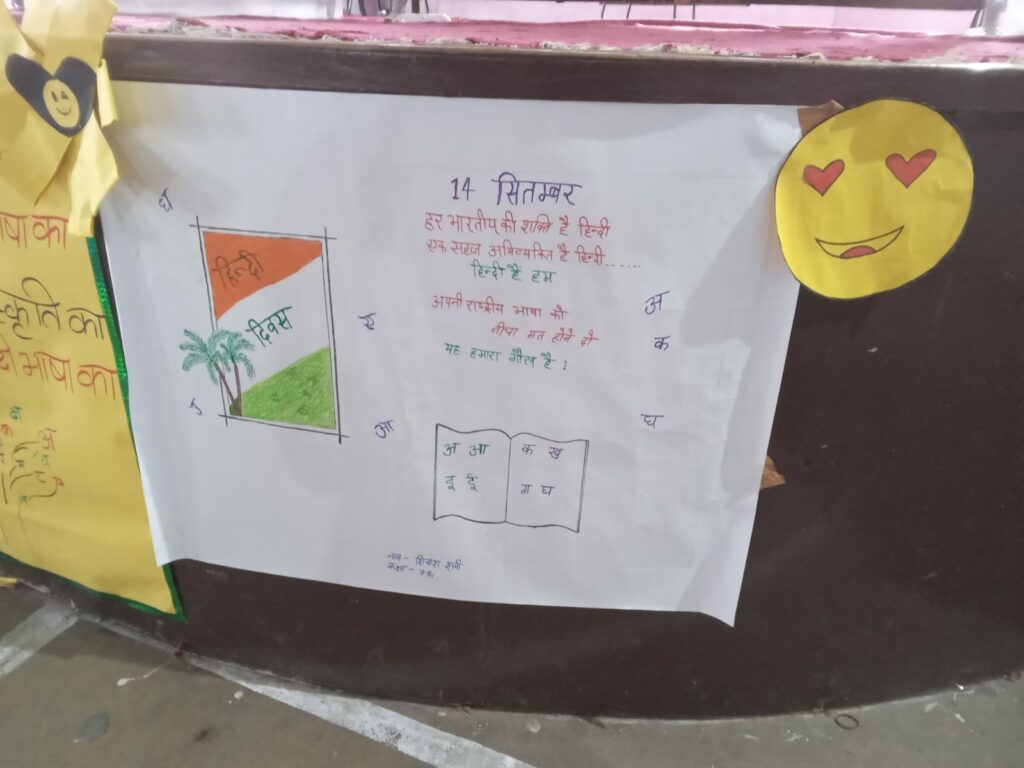 षा का
स्कृति का
भाषा का
अ
हिन्दी
दिवस
ई
आ
14 सितम्बर
हर भारतीय की शक्ति है हिन्दी
एक सहज अभिव्यक्ति है हिन्दी......
हिन्दी है हम
अपनी राष्ट्रीय भाषा को
नीचा मत होने दो
यह हमारा गौरव है ।
अ
क
घ
अ आ
इ ई
क ख
ग घ
नाम -
कक्षा - 7th